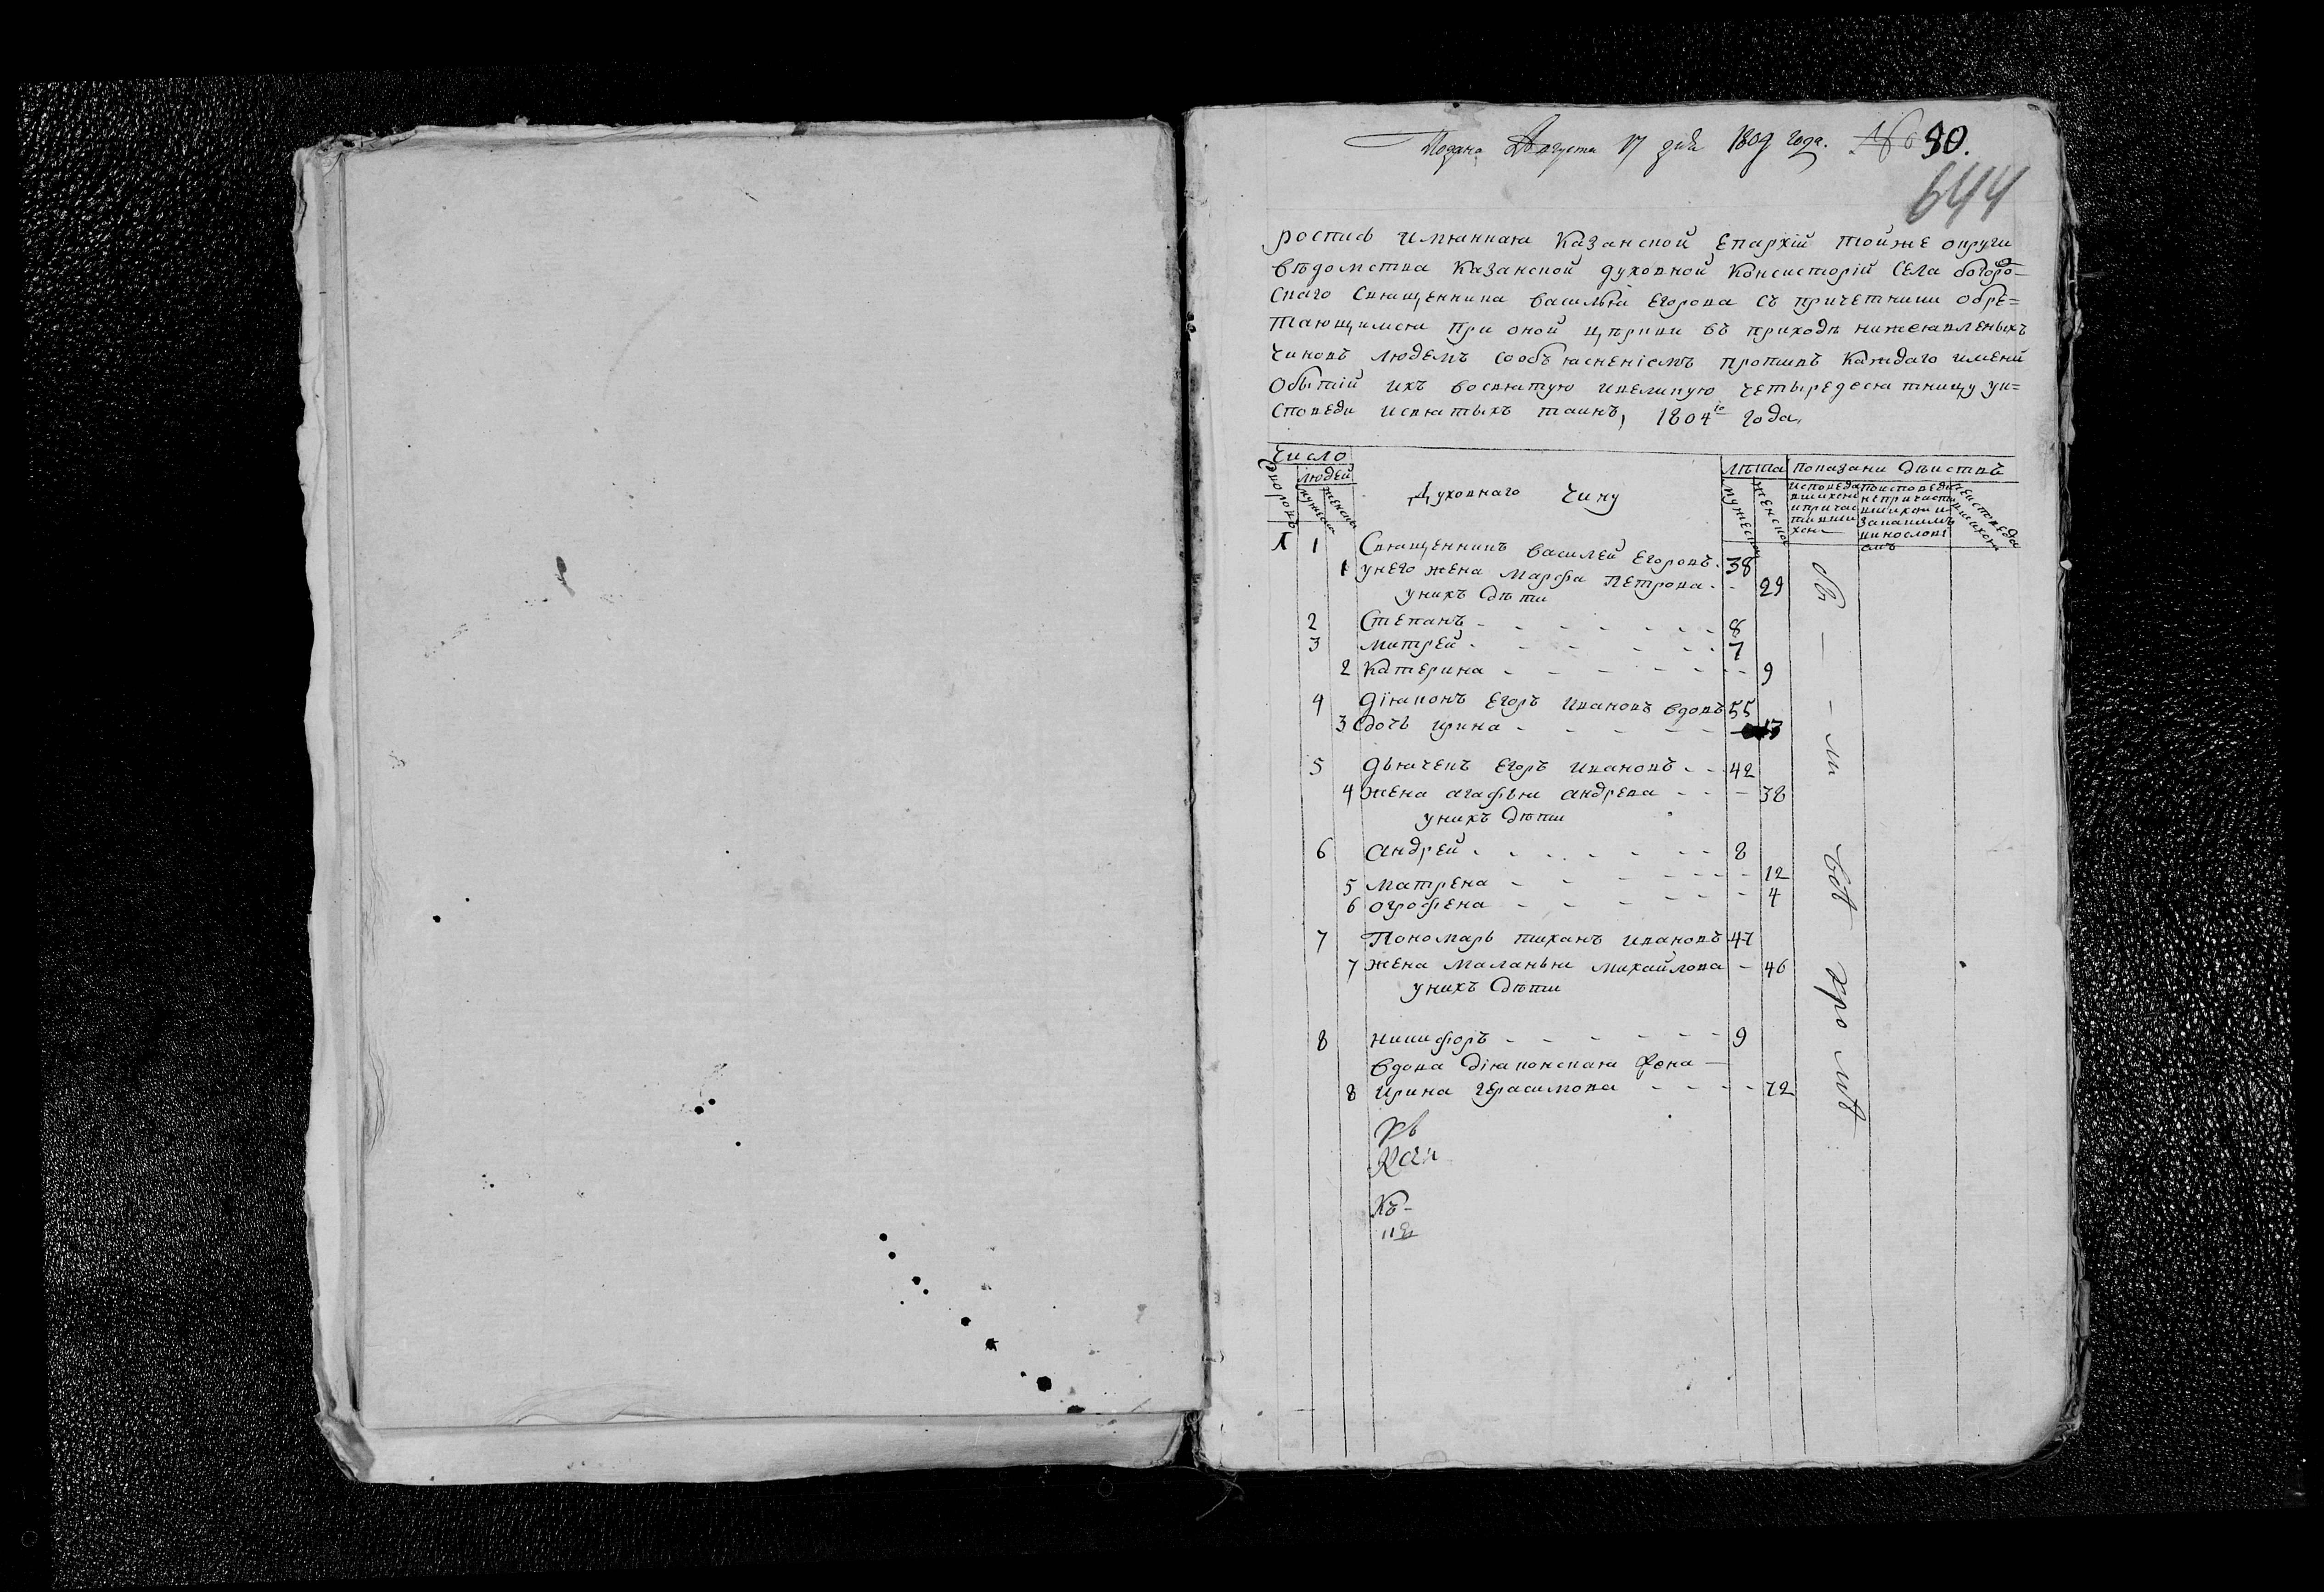 Подана Августа 17 дня 1804 года. № 80.
644
роспись имяннаѧ Казанской Епархіи тойже округи
вѣдомства Казанской духовной Консисторіи села богоро-
скаго священника василья Егорова съ причетники обре=
тающимся при оной церкви въ приходѣ нижеявленыхъ
чиновъ людемъ сообъясненіемъ противъ каждаго имени
обытіи ихъ восвятую ивеликую четыредесятницу уи=
споведи исвятыхъ таинъ, 1804го года,
число
дворовъ
людей
мужеска
женска
Духовнаго чину
лѣта
мужеска
женска
показани действъ
исповеда
вшихся
ипричас
тивши
хся
поисповеди
непричаст
ившихся и
закаким
винослові
емъ
неисповеда
вшихся
1 1 Священникъ василей Егоровъ. 38
1 унего жена Марфа Петрова. - 29
унихъ дѣти
2 Степанъ - - - - - - - 8
3 митрей - - - - - - 7
2 Катерина - - - - - - - 9
4 діаконъ Егоръ Ивановъ вдовъ 55
3 дочь ирина - - - - - 13
5 дьячекъ Егоръ ивановъ - - 42
4 жена агафья андрева - - - 38
унихъ дѣти
6 андрей - - - - - - - 8
5 матрена - - - - - - - 12
6 огрофена - - - - - - 4
7 Пономарь тиханъ ивановъ 47
7 жена маланья михайлова - 46
унихъ дѣти
8 никифоръ - - - - - - - 9
вдова діаконская жена —
8 ирина герасимова - - - - 72